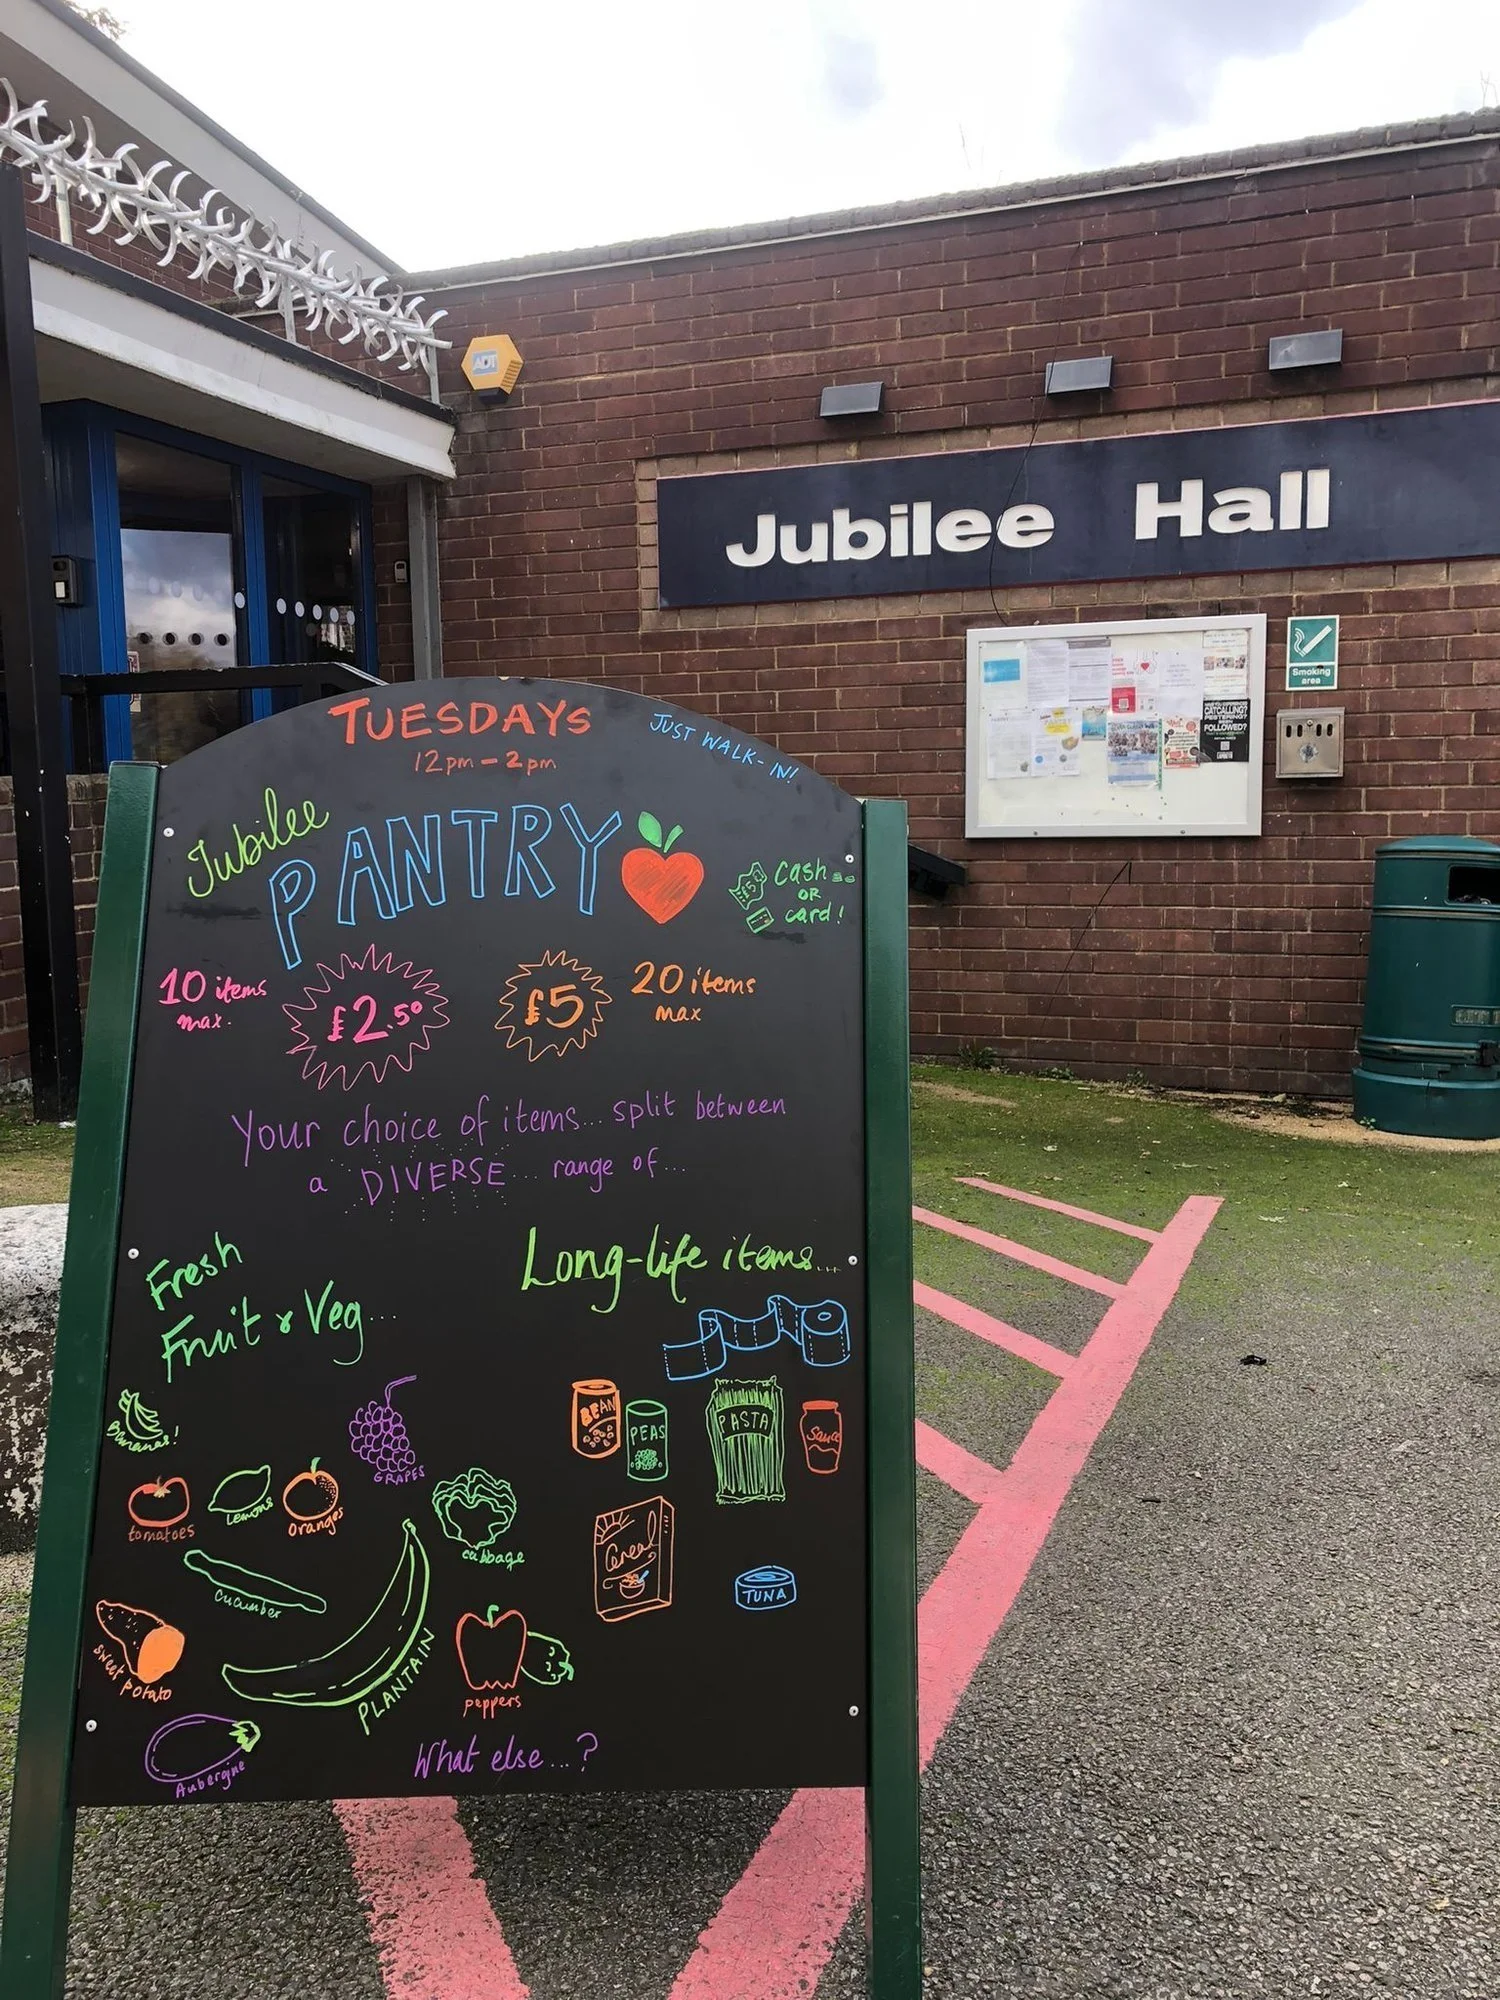 ADT
Jubilee Hall
Smoking
area
CATCALLING?
FOLLOWED?
TUESDAYS
12pm - 2pm
JUST WALK-IN!
Jubilee
PANTRY
£5
Cash
OR
card!
10 items
max.
£2.50
£5
20 items
max
Your choice of items... split between
a DIVERSE... range of...
Fresh
Fruit & Veg...
Long-life items...
Bananas!
GRAPES
tomatoes
Lemons
oranges
cabbage
cucumber
sweet potato
PLANTAIN
peppers
Aubergine
BEAN
PEAS
PASTA
Sauce
Cereal
TUNA
What else...?